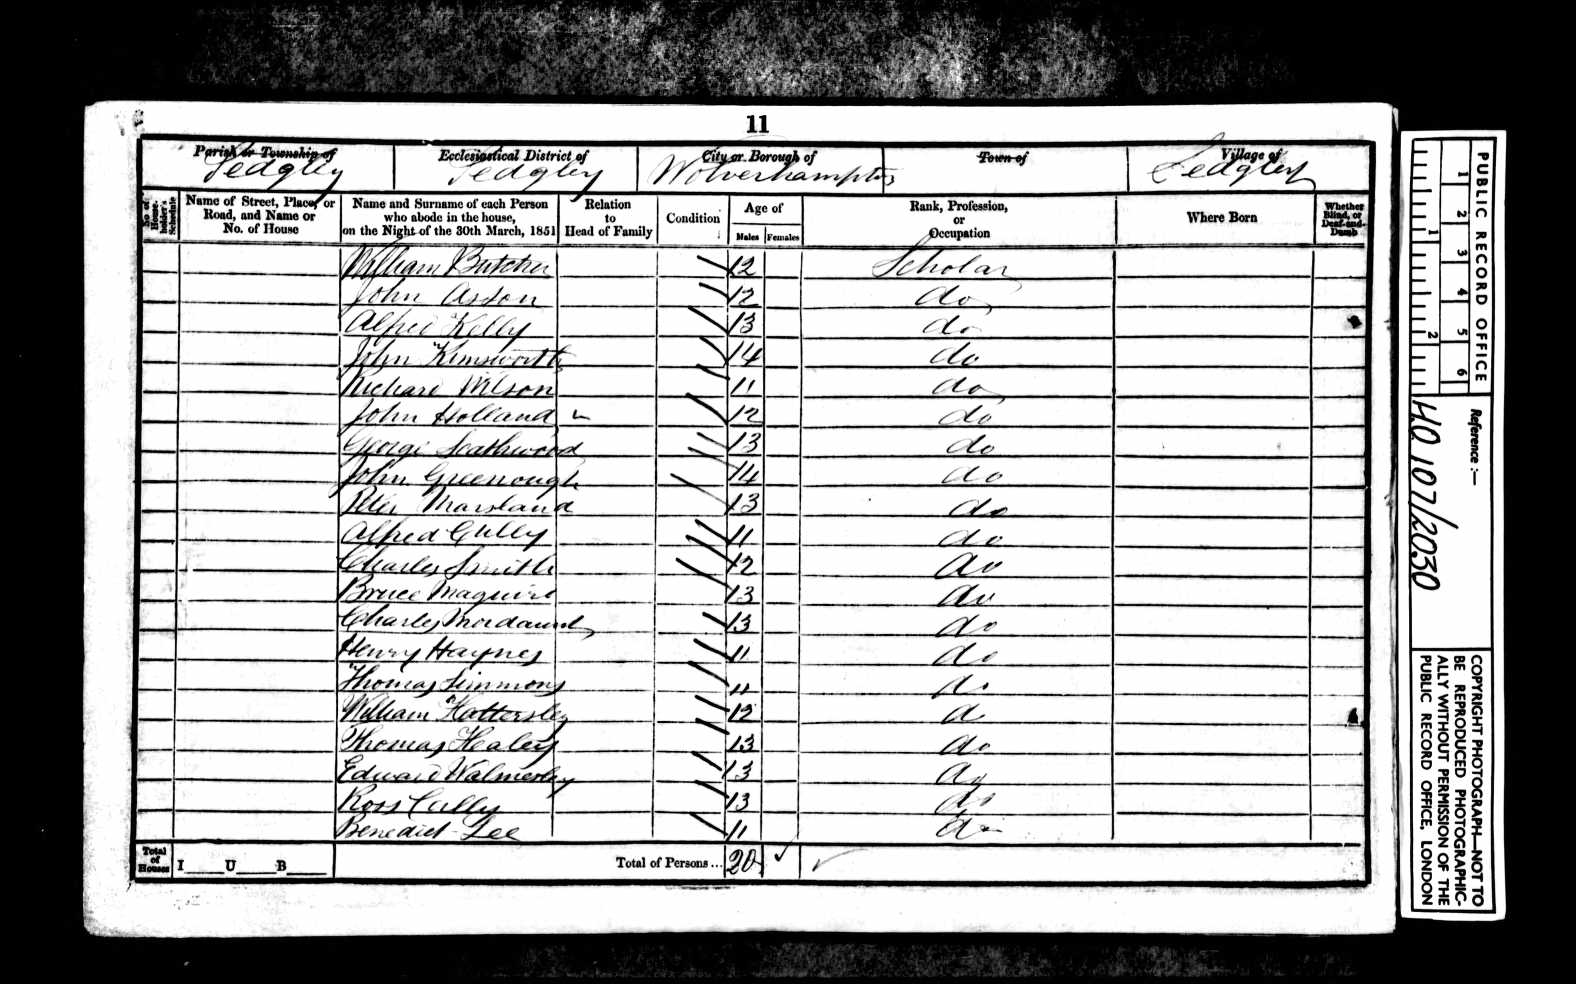 11
Parish or Township of
Ecclesiastical District of
City or Borough of
Town of
Village of
Sedgley
Sedgley
Wolverhampton
Sedgley
No of House-holder's Schedule
Name of Street, Place, or Road, and Name or No. of House
Name and Surname of each Person who abode in the house, on the Night of the 30th March, 1851
Relation to Head of Family
Condition
Age of
Males
Females
Rank, Profession, or Occupation
Where Born
Whether Blind, or Deaf-and-Dumb
William Butcher 12 Scholar
John Asson 12 do
Alfred Kelly 13 do
John Kemsworth 14 do
Richard Wilson 11 do
John Holland 12 do
George 13 do
John Greenough 14 do
Peter Marsland 13 do
Alfred Gilly 11 do
Charles Smith 12 do
Bruce Maguire 13 do
Charles Mordaunt 13 do
Henry Haynes 11 do
Thomas Simmons 11 do
William Hattersley 12 d
Thomas Healey 13 do
Edward Walmesley 13 do
Ross Cully 13 do
Benedict Lee 11 do
Total of Houses
I U B
Total of Persons... 20
PUBLIC RECORD OFFICE
1 2 3 4 5 6
1 2
Reference :-
HO 107/2030
COPYRIGHT PHOTOGRAPH—NOT TO
BE REPRODUCED PHOTOGRAPHIC-
ALLY WITHOUT PERMISSION OF THE
PUBLIC RECORD OFFICE, LONDON